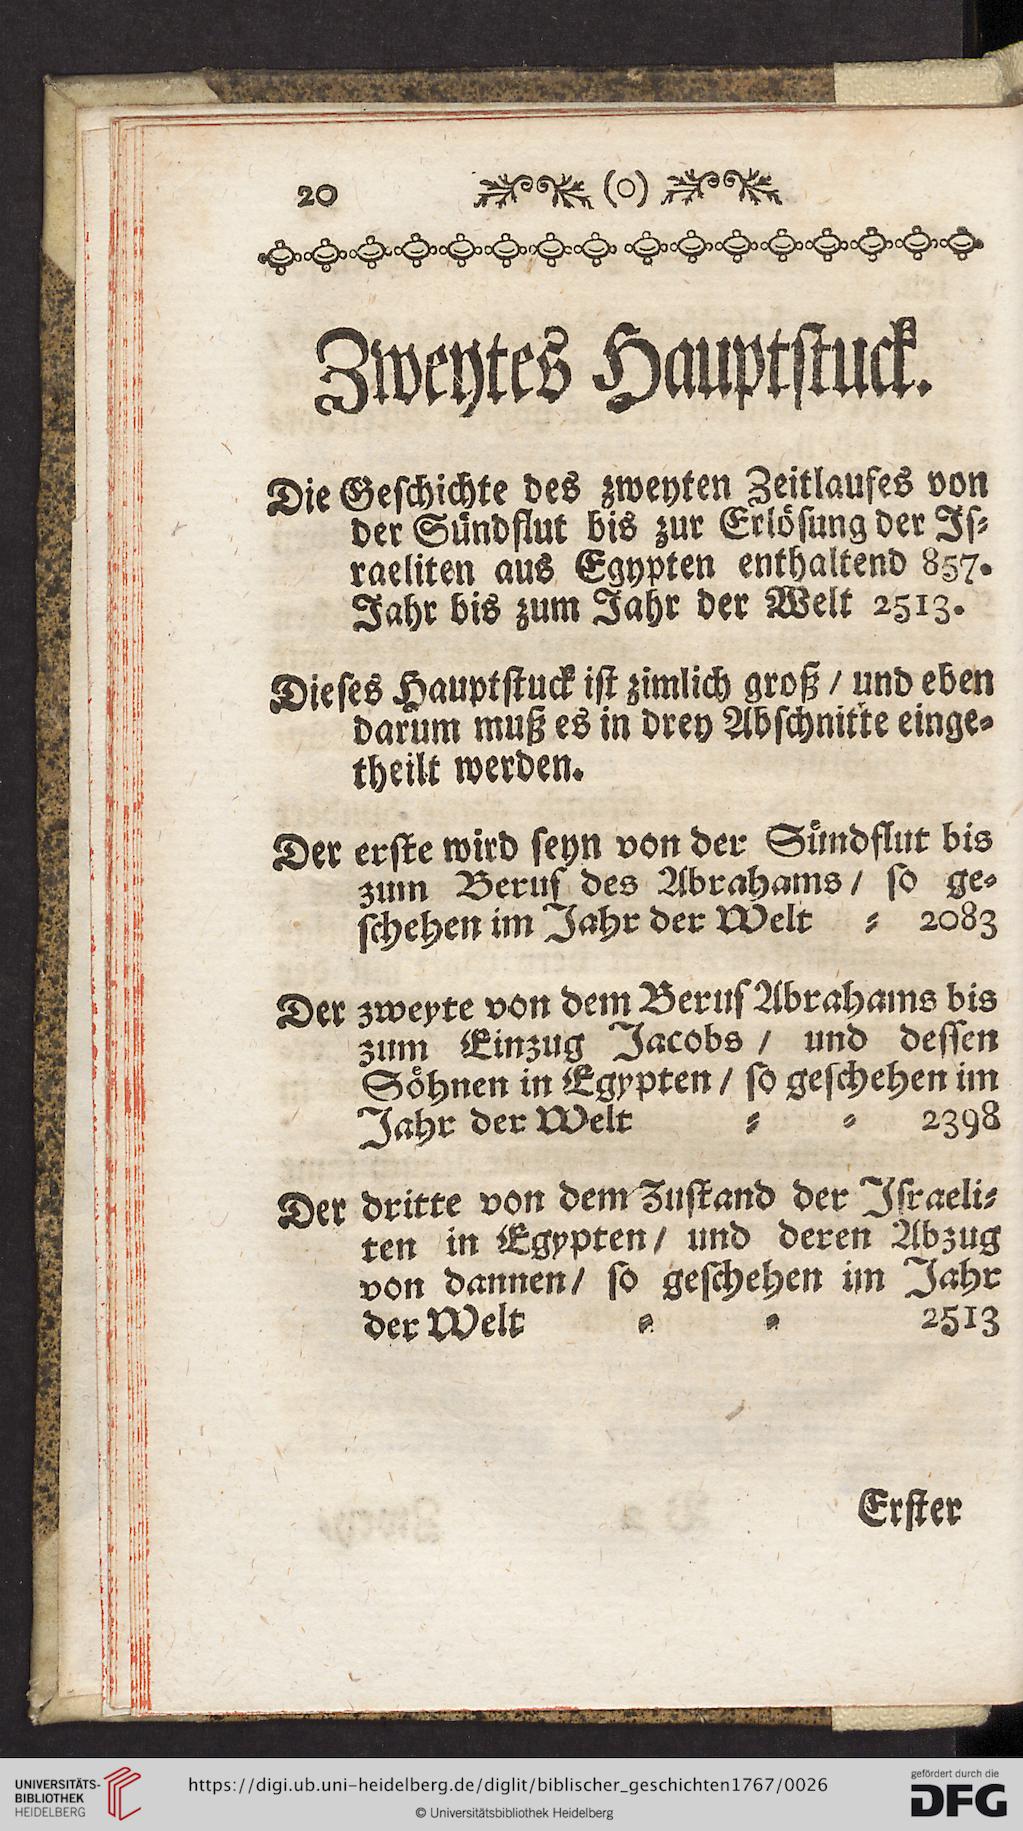 20 (o)
Zweytes Hauptstuck.
Die Geschichte des zweyten Zeitlaufes von
der Sündflut bis zur Erlösung der Is⸗
raeliten aus Egypten enthaltend 857.
Jahr bis zum Jahr der Welt 2513.
Dieses Hauptstuck ist zimlich groß / und eben
darum muß es in drey Abschnitte einge⸗
theilt werden.
Der erste wird seyn von der Sündflut bis
zum Beruf des Abrahams / so ge⸗
schehen im Jahr der Welt ⸗ 2083
Der zweyte von dem Beruf Abrahams bis
zum Einzug Jacobs / und dessen
Söhnen in Egypten / so geschehen im
Jahr der Welt ⸗ ⸗ 2398
Der dritte von dem Zustand der Israeli⸗
ten in Egypten / und deren Abzug
von dannen / so geschehen im Jahr
der Welt ⸗ ⸗ 2513
Erster
UNIVERSITÄTS-
BIBLIOTHEK
HEIDELBERG
https://digi.ub.uni-heidelberg.de/diglit/biblischer_geschichten1767/0026
© Universitätsbibliothek Heidelberg
gefördert durch die
DFG